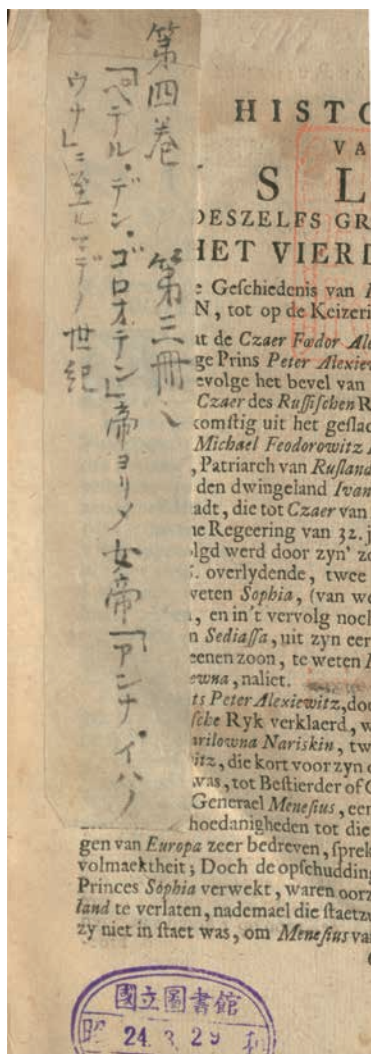 第四巻 第三冊
「ペテル・デン・ゴロオテン」帝ヨリ女帝「アンナ・イハノ
ウナ」ニ至ルマデノ世紀
HISTO
VA
S L
DESZELFS GR
HET VIERD
Geschiedenis van
N, tot op de Keizeri
at de Czaer Fœdor Ale
ge Prins Peter Alexiew
evolge het bevel van
Czaer des Russischen R
komstig uit het geslac
Michael Feodorowitz
, Patriarch van Rusland
den dwingeland Ivan
adt, die tot Czaer van
ne Regeering van 32. j
olgd werd door zyn' zo
. overlydende, twee
weten Sophia, (van we
, en in't vervolg noch
n Sediassa, uit zyn eer
eenen zoon, te weten
ewna, naliet.
ts Peter Alexiewitz, doo
sche Ryk verklaerd, w
rilowna Nariskin, tw
itz, die kort voor zyn
was, tot Bestierder of
Generael Menesius, eer
hoedanigheden tot die
gen van Europa zeer bedreven, sprek
volmaektheit; Doch de opschudding
Princes Sophia verwekt, waren oorz
land te verlaten, nademael die staetzu
zy niet in staet was, om Menesius va
國立圖書館
昭 24. 3. 29 和